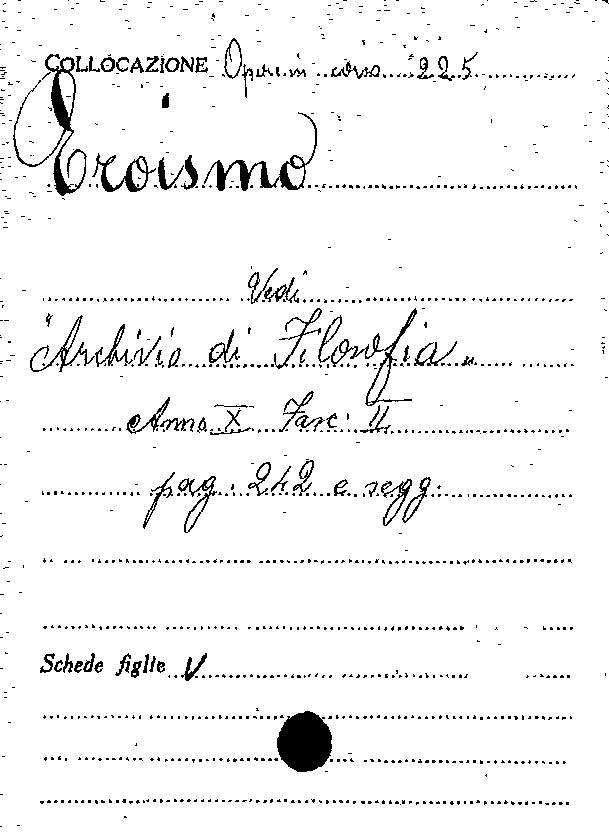 COLLOCAZIONE Opere in corso 225
Eroismo
Vedi
"Archivio di Filosofia„
Anno X Fasc. II
pag. 242 e segg.
Schede figlie V